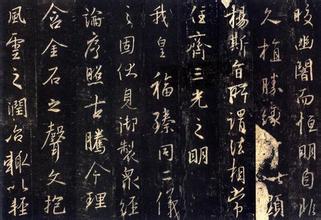 皎幽闇而恒明自非
久植勝緣顯
揚斯旨所謂法相常
住齊三光之明
我皇福臻同二儀
之固伏見御製眾經
論序照古騰今理
含金石之聲文抱
風雲之潤治輒以輕